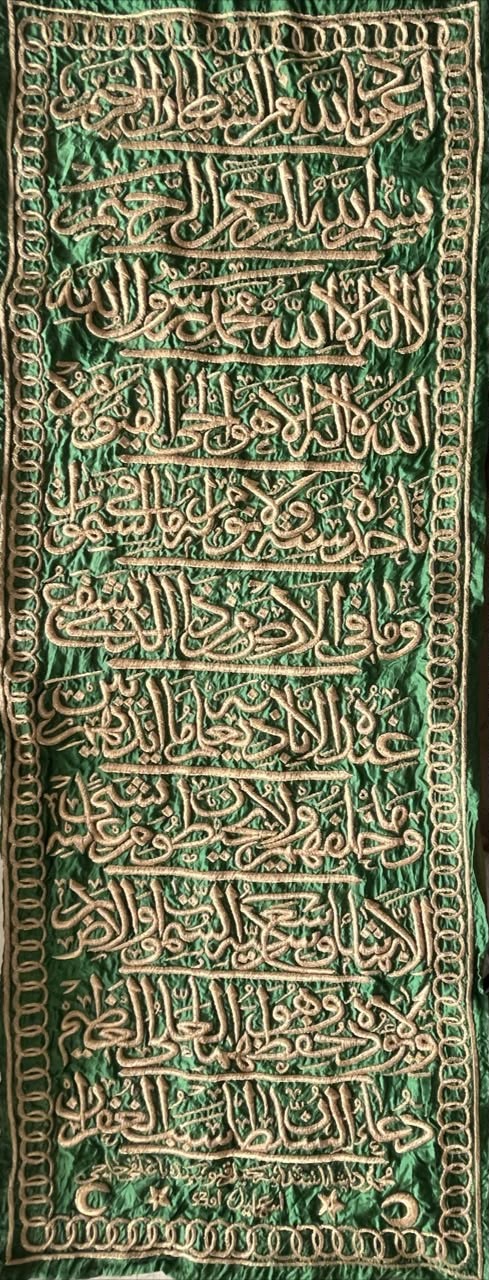 اعوذ بالله من الشيطان الرجيم
بسم الله الرحمن الرحيم
لا اله الا الله محمد رسول الله
الله لا اله الا هو الحي القيوم لا
تاخذه سنة ولا نوم له ما في السموات
وما في الارض من ذا الذي يشفع
عنده الا باذنه يعلم ما بين ايديهم
وما خلفهم ولا يحيطون بشئ من علمه
الا بما شاء وسع كرسيه السموات والارض
ولا يؤده حفظهما وهو العلي العظيم
دعاء السلطان سبب الغفران